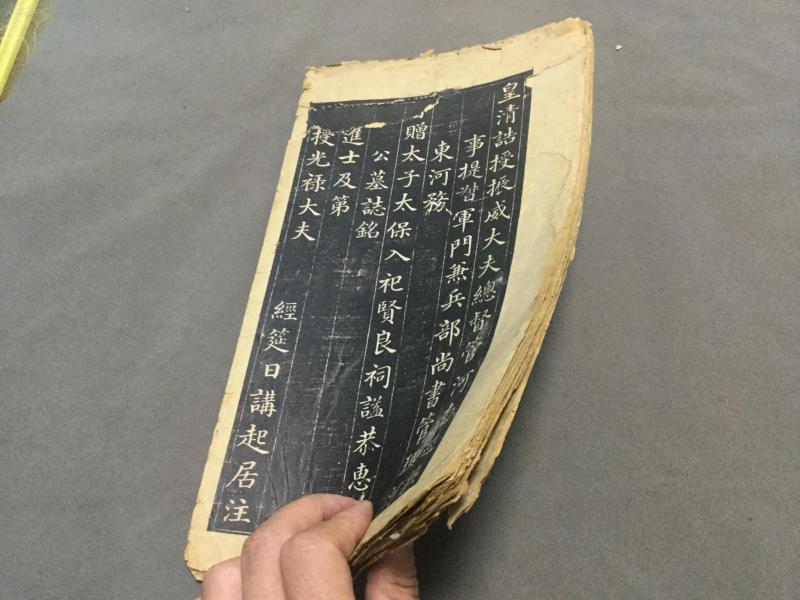 皇清誥授振威大夫總督管河
事提督軍門兼兵部尚書管
東河務
贈太子太保入祀賢良祠諡恭惠
公墓誌銘
進士及第
授光祿大夫 經筵日講起居注